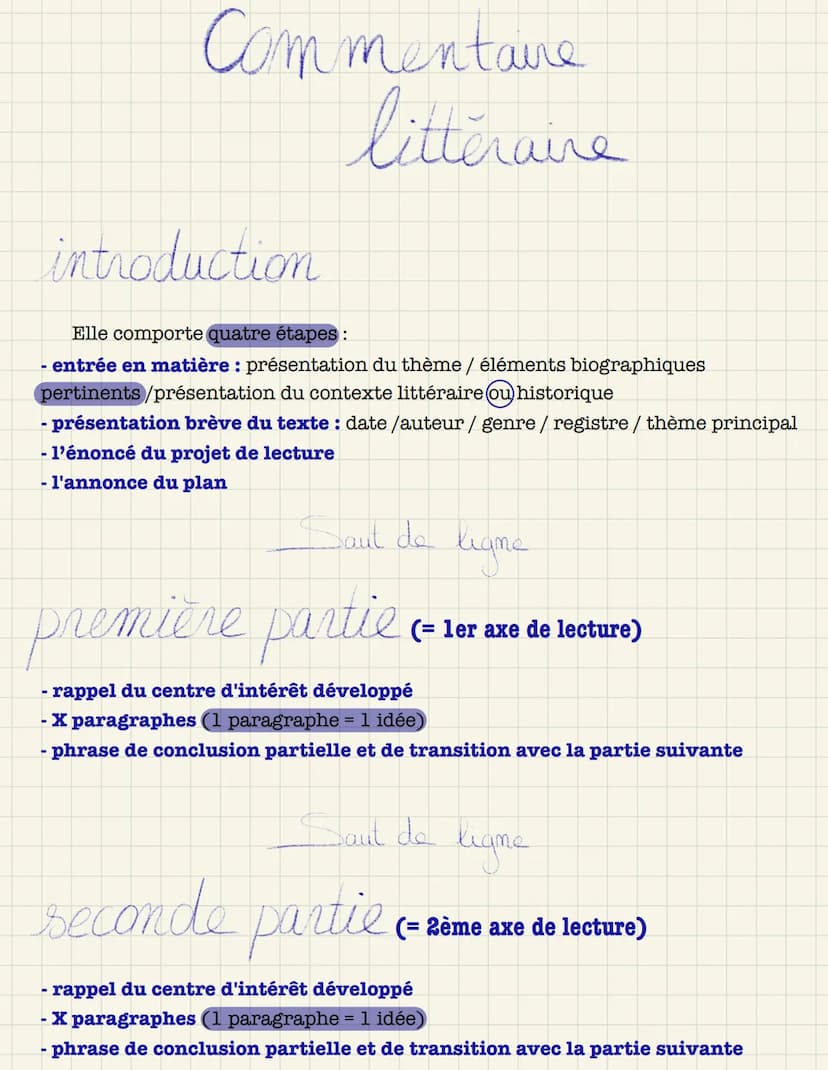 Commentaire
littéraire
introduction
Elle comporte quatre étapes :
- entrée en matière : présentation du thème / éléments biographiques
pertinents /présentation du contexte littéraire ou historique
- présentation brève du texte : date /auteur / genre / registre / thème principal
- l’énoncé du projet de lecture
- l'annonce du plan
Saut de ligne
première partie (= 1er axe de lecture)
- rappel du centre d'intérêt développé
- X paragraphes (1 paragraphe = 1 idée)
- phrase de conclusion partielle et de transition avec la partie suivante
Saut de ligne
seconde partie (= 2ème axe de lecture)
- rappel du centre d'intérêt développé
- X paragraphes (1 paragraphe = 1 idée)
- phrase de conclusion partielle et de transition avec la partie suivante